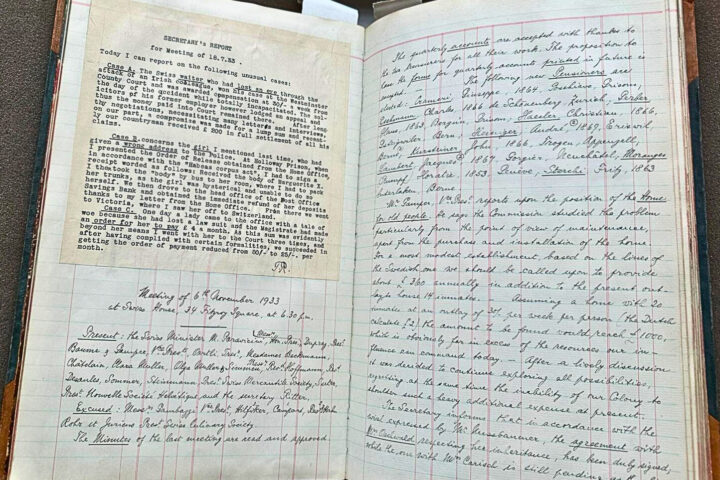 SECRETARY'S REPORT
for Meeting of 18.7.33.
Today I can report on the following unusual cases:
Case A. The Swiss waiter who had lost an eye through the
attack of an Irish colleague, won his case at the Westminster
County Court and was awarded compensation at 30/- won from
the day of the accident until totally incapacitated. The sol-
icitors of his former employer however lodged an appeal and
thus the money paid into Court remained there. After leng-
thy negotiations, necessitating many letters and interviews
on our part, a compromise was made for a lump sum and recent-
ly our countryman received £ 200 in full settlement of all his
claims.
Case B. concerns the girl I mentioned last time, who had
given a wrong address to the Police. At Holloway Prison, when
I presented the Order of Release obtained from the Home Office
in accordance with the "Habeas corpus act", I had to sign a
receipt worded as follows: Received the body of Marguerite X.
I then took the "body" by bus to her room, where I had to pack
her trunks, as the girl was hysterical and unable to do so
herself. We then drove to the head office of the Post Office
Savings Bank and obtained the immediate refund of her deposits
thanks to my letter from the Home Office. From there we went
to Victoria, where I saw her off to Switzerland.
Case C. One day a lady came to the office with a tale of
woe because she had lost a law suit and the Magistrate had made
an order for her to pay £ 4 a month. As this sum was evidently
beyond her means I went with her to the Court three times, and
after having complied with certain formalities, we succeeded in
getting the order of payment reduced from 80/- to 25/- per
month.
Meeting of 6th November 1933
at Swiss House, 34 Fitzroy Square, at 6.30 p.m.
Present: the Swiss Minister M. Paravicini, Hon. Pres., Duprey Pres.
Baume & Pampe, Vice Pres., Conti, Mesdames Beckmann,
Châtelain, Clara Müller, Olga Pres. Hoffmann,
Desaules, Sommer, Steinmann Pres. Swiss Mercantile Society, Suter
Pres. Nouvelle Société Helvétique and the secretary Ritter.
Excused: Messrs Vice Pres., Hilfiker, Campart,
Rohr et Juriens Pres. Swiss Culinary Society
The Minutes of the last meeting are read and approved.
The quarterly accounts are accepted with thanks to
the two treasurers for all their work. The proposition to
have the forms for quarterly accounts printed in future is
The following new Pensioners are
Giuseppe, 1864, Poschiavo, Grisons,
Charles 1866 de Schönenberg Zurich,
1863, Bergün, Grisons; Haesler Christian, 1866,
Berne; André 1867, Eriswil,
Berne; John, 1866, Trogen, Appenzell,
Jacques 1867, Gorgier, Neuchâtel,
Horatio 1853, Genève, Storchi Fritz, 1863
Interlaken, Berne.
Mr. Pampe, V. Pres. reports upon the position of the Home
for old people. He says the Commission studied the problem
particularly from the point of view of maintenance,
apart from the purchase and installation of the home.
For a most modest establishment, based on the lines of
the Swedish one we should be called upon to provide
about £ 360 annually in addition to the present out-
lay to house 14 inmates. Assuming a home with 20
inmates at an outlay of 30/- per week per person (the Dutch
calculate £2) the amount to be found would reach £1,000,
which is obviously far in excess of the resources our in-
fluence can command today. After a lively discussion
it was decided to continue exploring all possibilities,
regretting at the same time the inability of our Colony to
shoulder such a heavy additional expense at present.
The Secretary informs that in accordance with the
wish expressed by Mr. the agreement with
Mr. respecting her inheritance, has been duly signed,
while the one with Mrs Carisch is still pending